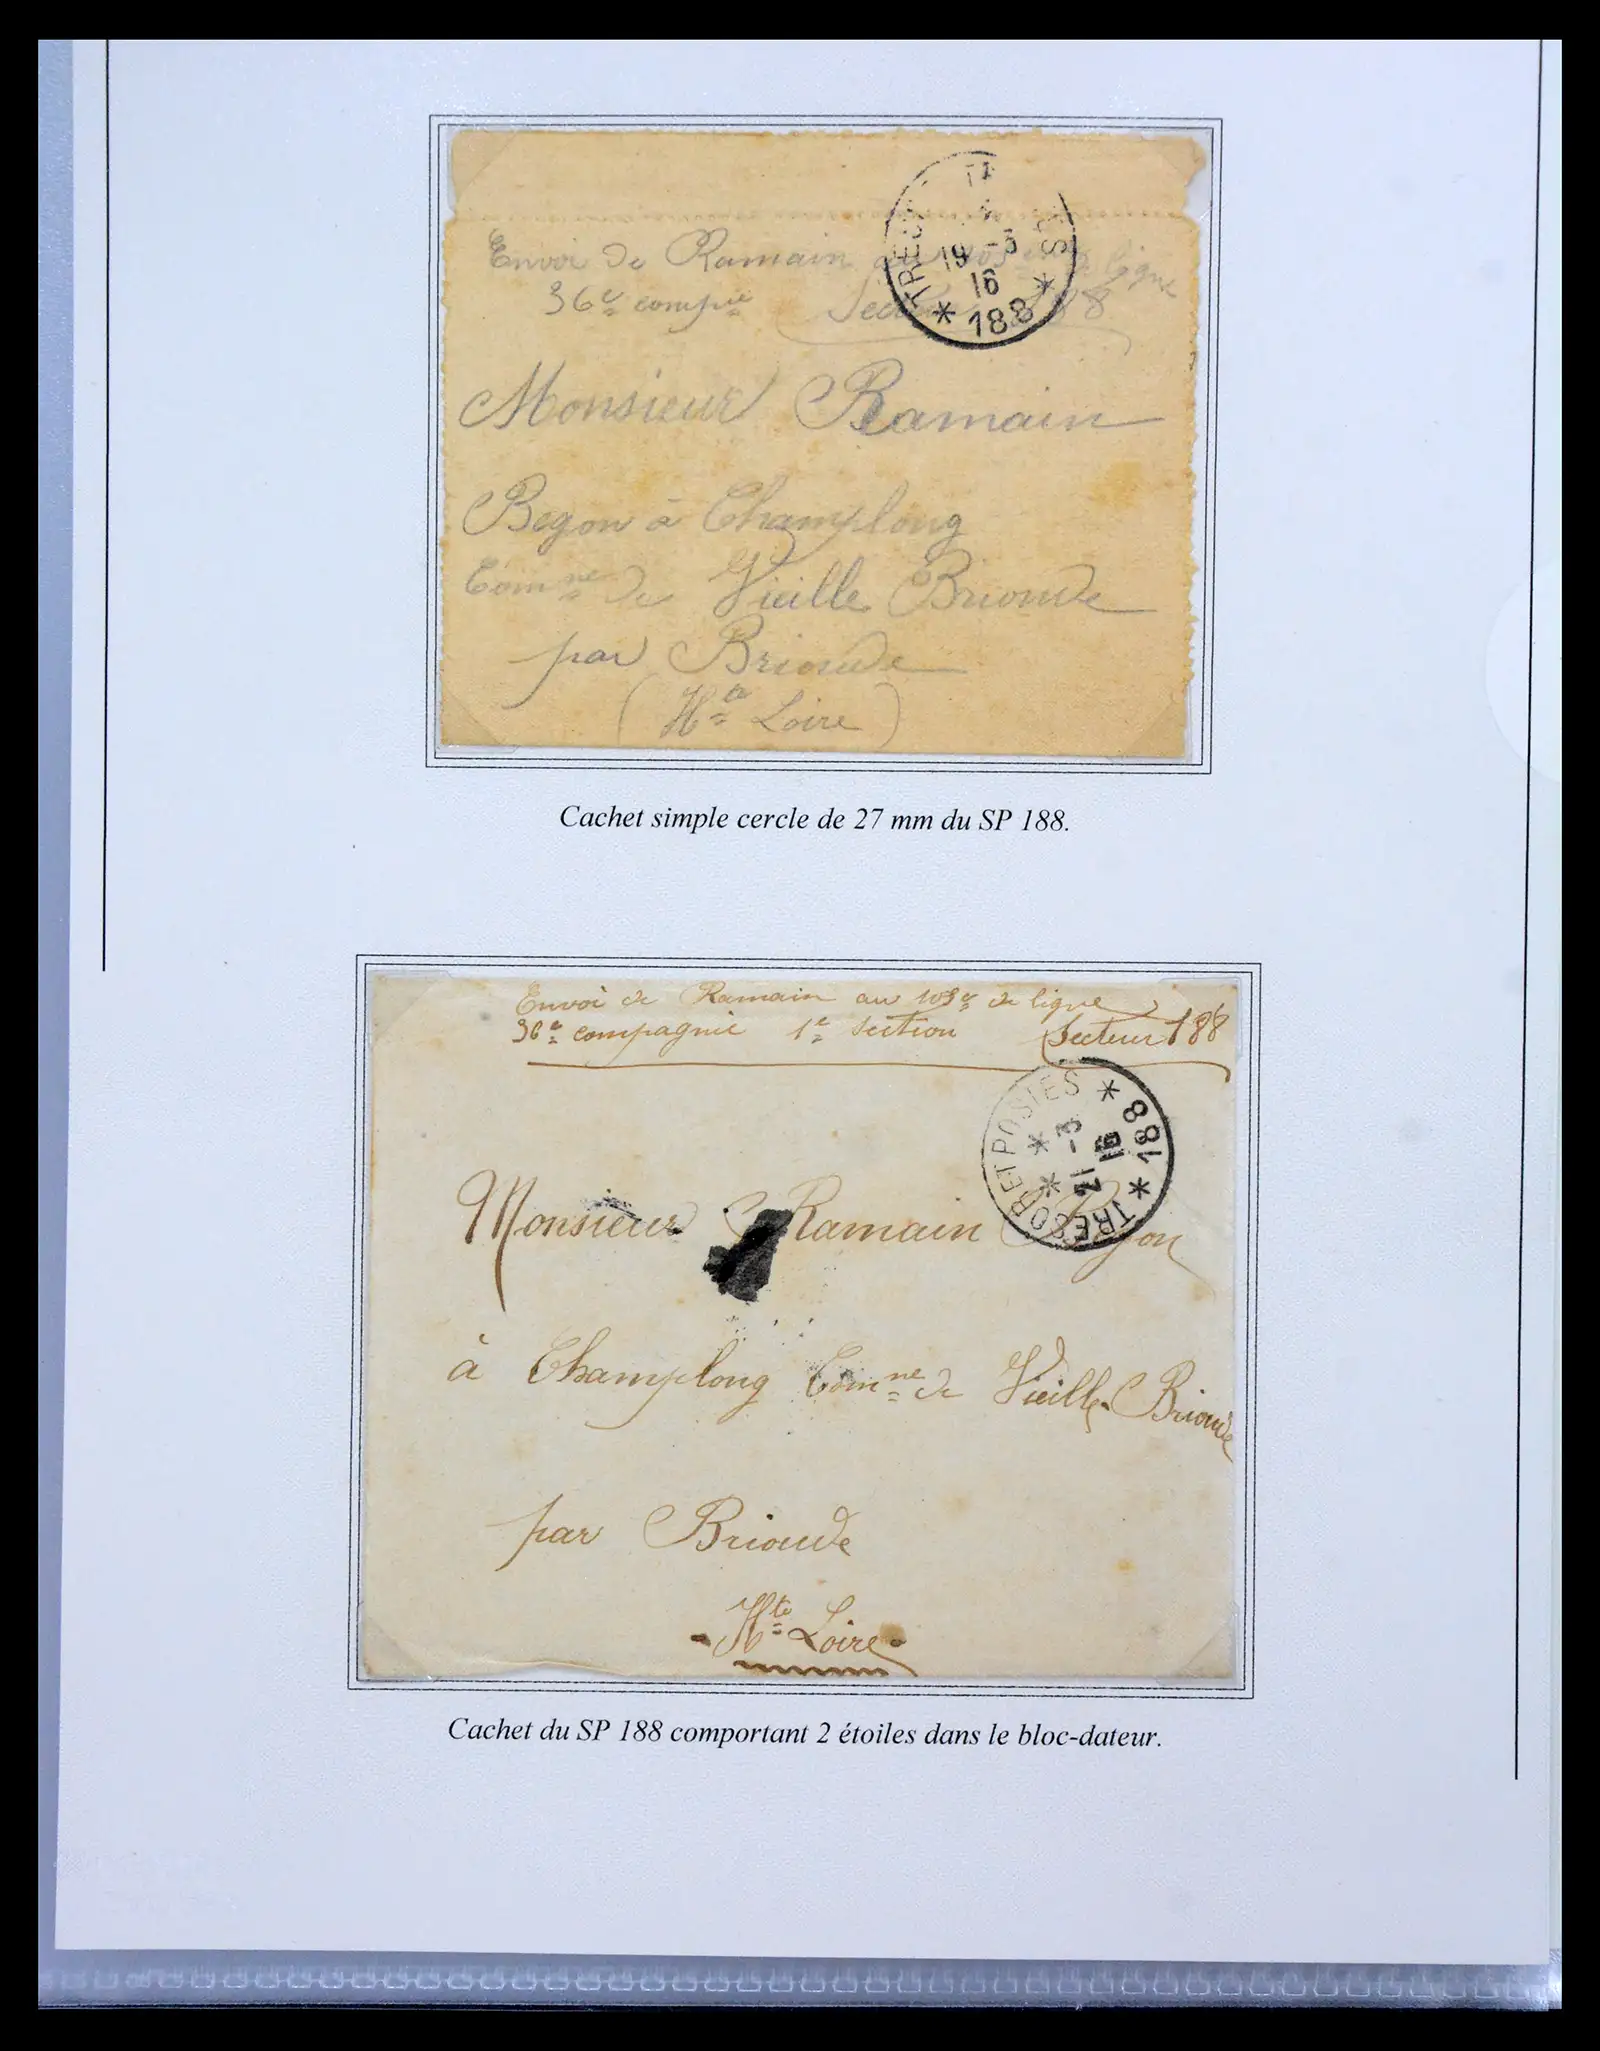 Envoi de Ramain au 105e de ligne
36e compie Secteur 188
TRESOR
19 -3
16
* 188 *
Monsieur Ramain
Begon à Champlong
Comne de Vieille Brioude
par Brioude
(Hte Loire)
Cachet simple cercle de 27 mm du SP 188.
Envoi de Ramain au 105e de ligne
36e compagnie 1e Section Secteur 188
TRESOR ET POSTES
* *
21 -3
16
* 188 *
Monsieur Ramain Begon
à Champlong Comne de Vieille-Brioude
par Brioude
- Hte Loire -
Cachet du SP 188 comportant 2 étoiles dans le bloc-dateur.